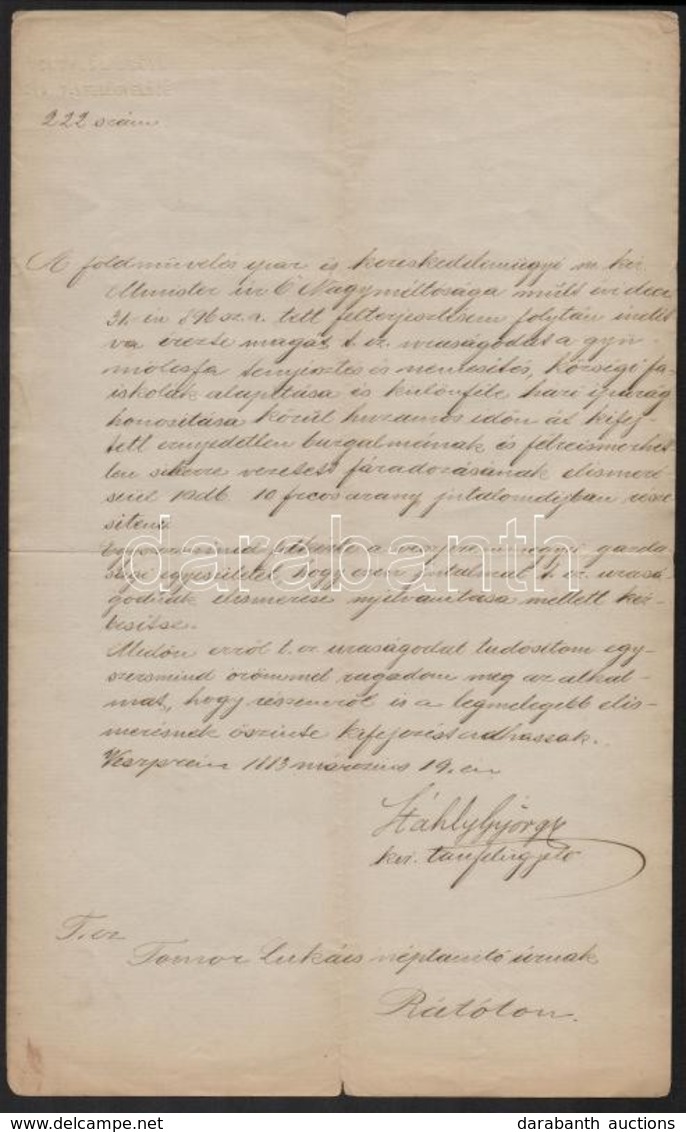 222 szám
A földmüvelés ipar és kereskedelemügyi m. kir.
Minister úr Ő Nagyméltósága múlt év decz
31. én 896 sz. a. tett felterjesztésem folytán indít
va érezte magát t. cz. uraságodat a gyü-
mölcsfa tenyésztés és nemesítés, községi fa-
iskolák alapítása és különféle házi iparág
honosítása körül huzamos időn át kifej-
tett ernyedetlen buzgalmának és félreismerhet-
len sikerre vezetett fáradozásának elismeré-
séül 10 frcos arany jutalomdíjban része-
síteni
Egyszersmind felkérte a veszprémmegyei gazda
sági egyesületet, hogy ezen jutalmat t. cz. urasá-
godnak elismerése nyilvánítása mellett kéz-
besítse.
Midőn erről t. cz. uraságodat tudósítom egy-
szersmind örömmel ragadom meg az alkal-
mat, hogy részemről is a legmelegebb elis-
merésnek őszinte kifejezést adhassak.
Veszprém 1883 március 19. én
Stáhly György
kir. tanfelügyelő
T. cz
Tomor Lukács néptanító úrnak
Rátóton.
darabanth
darabanth auctions